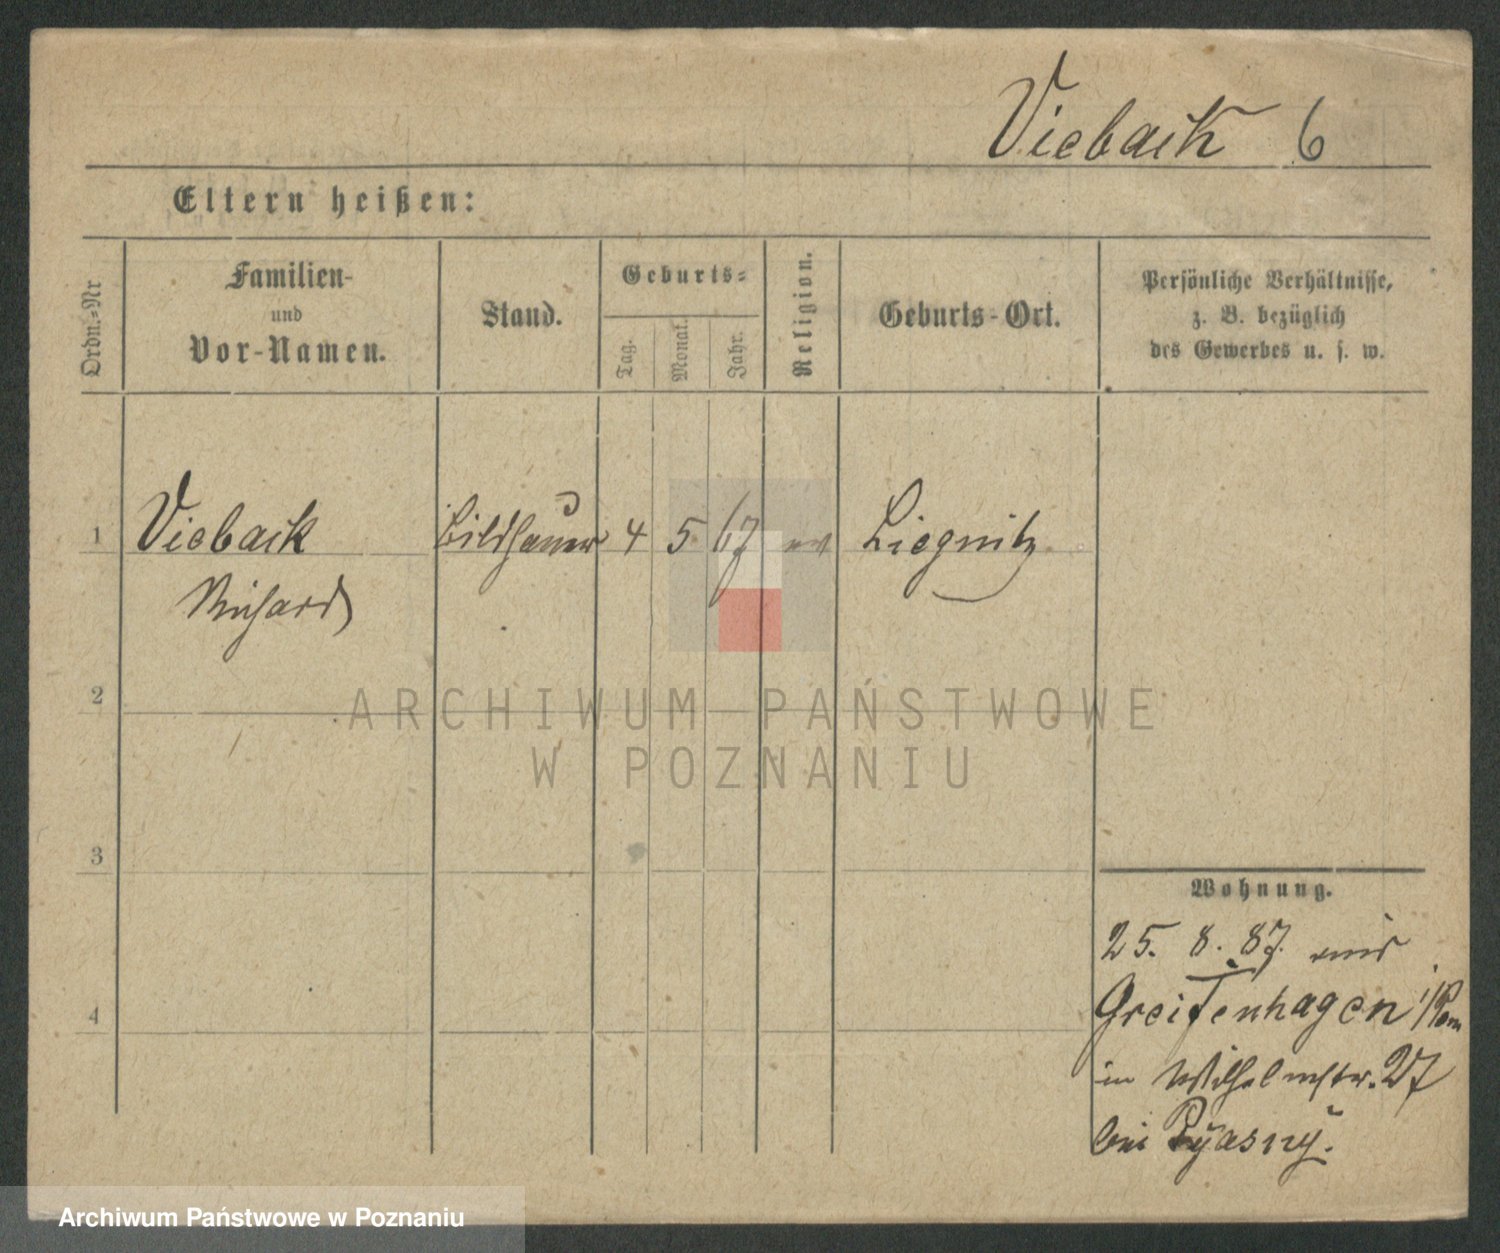 Viebaik 6
Eltern heißen:
Ordn.-Nr
Familien-
und
Vor-Namen.
Stand.
Geburts-
Tag.
Monat.
Jahr.
Religion.
Geburts-Ort.
Persönliche Verhältnisse,
z. B. bezüglich
des Gewerbes u. s. w.
1 Viebaik Bildhauer 4 5 67 ev Liegnitz
Richard
2
3
4
Wohnung.
25. 8. 87.
Greifenhagen i/Pom
in Wilhelmstr. 27
bei Pÿasnÿ.
ARCHIWUM PAŃSTWOWE
W POZNANIU
Archiwum Państwowe w Poznaniu